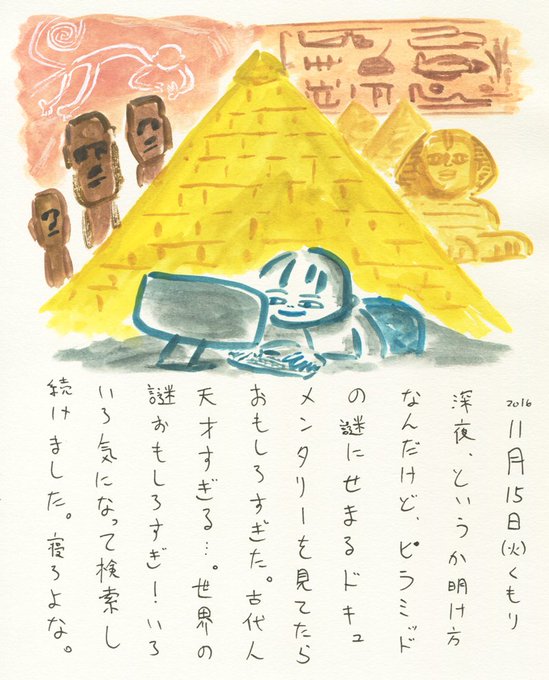 2016
11月15日(火)くもり
深夜、というか明け方
なんだけど、ピラミッド
の謎にせまるドキュ
メンタリーを見てたら
おもしろすぎた。古代人
天才すぎる…。世界の
謎おもしろすぎ!いろ
いろ気になって検索し
続けました。寝ろよな。